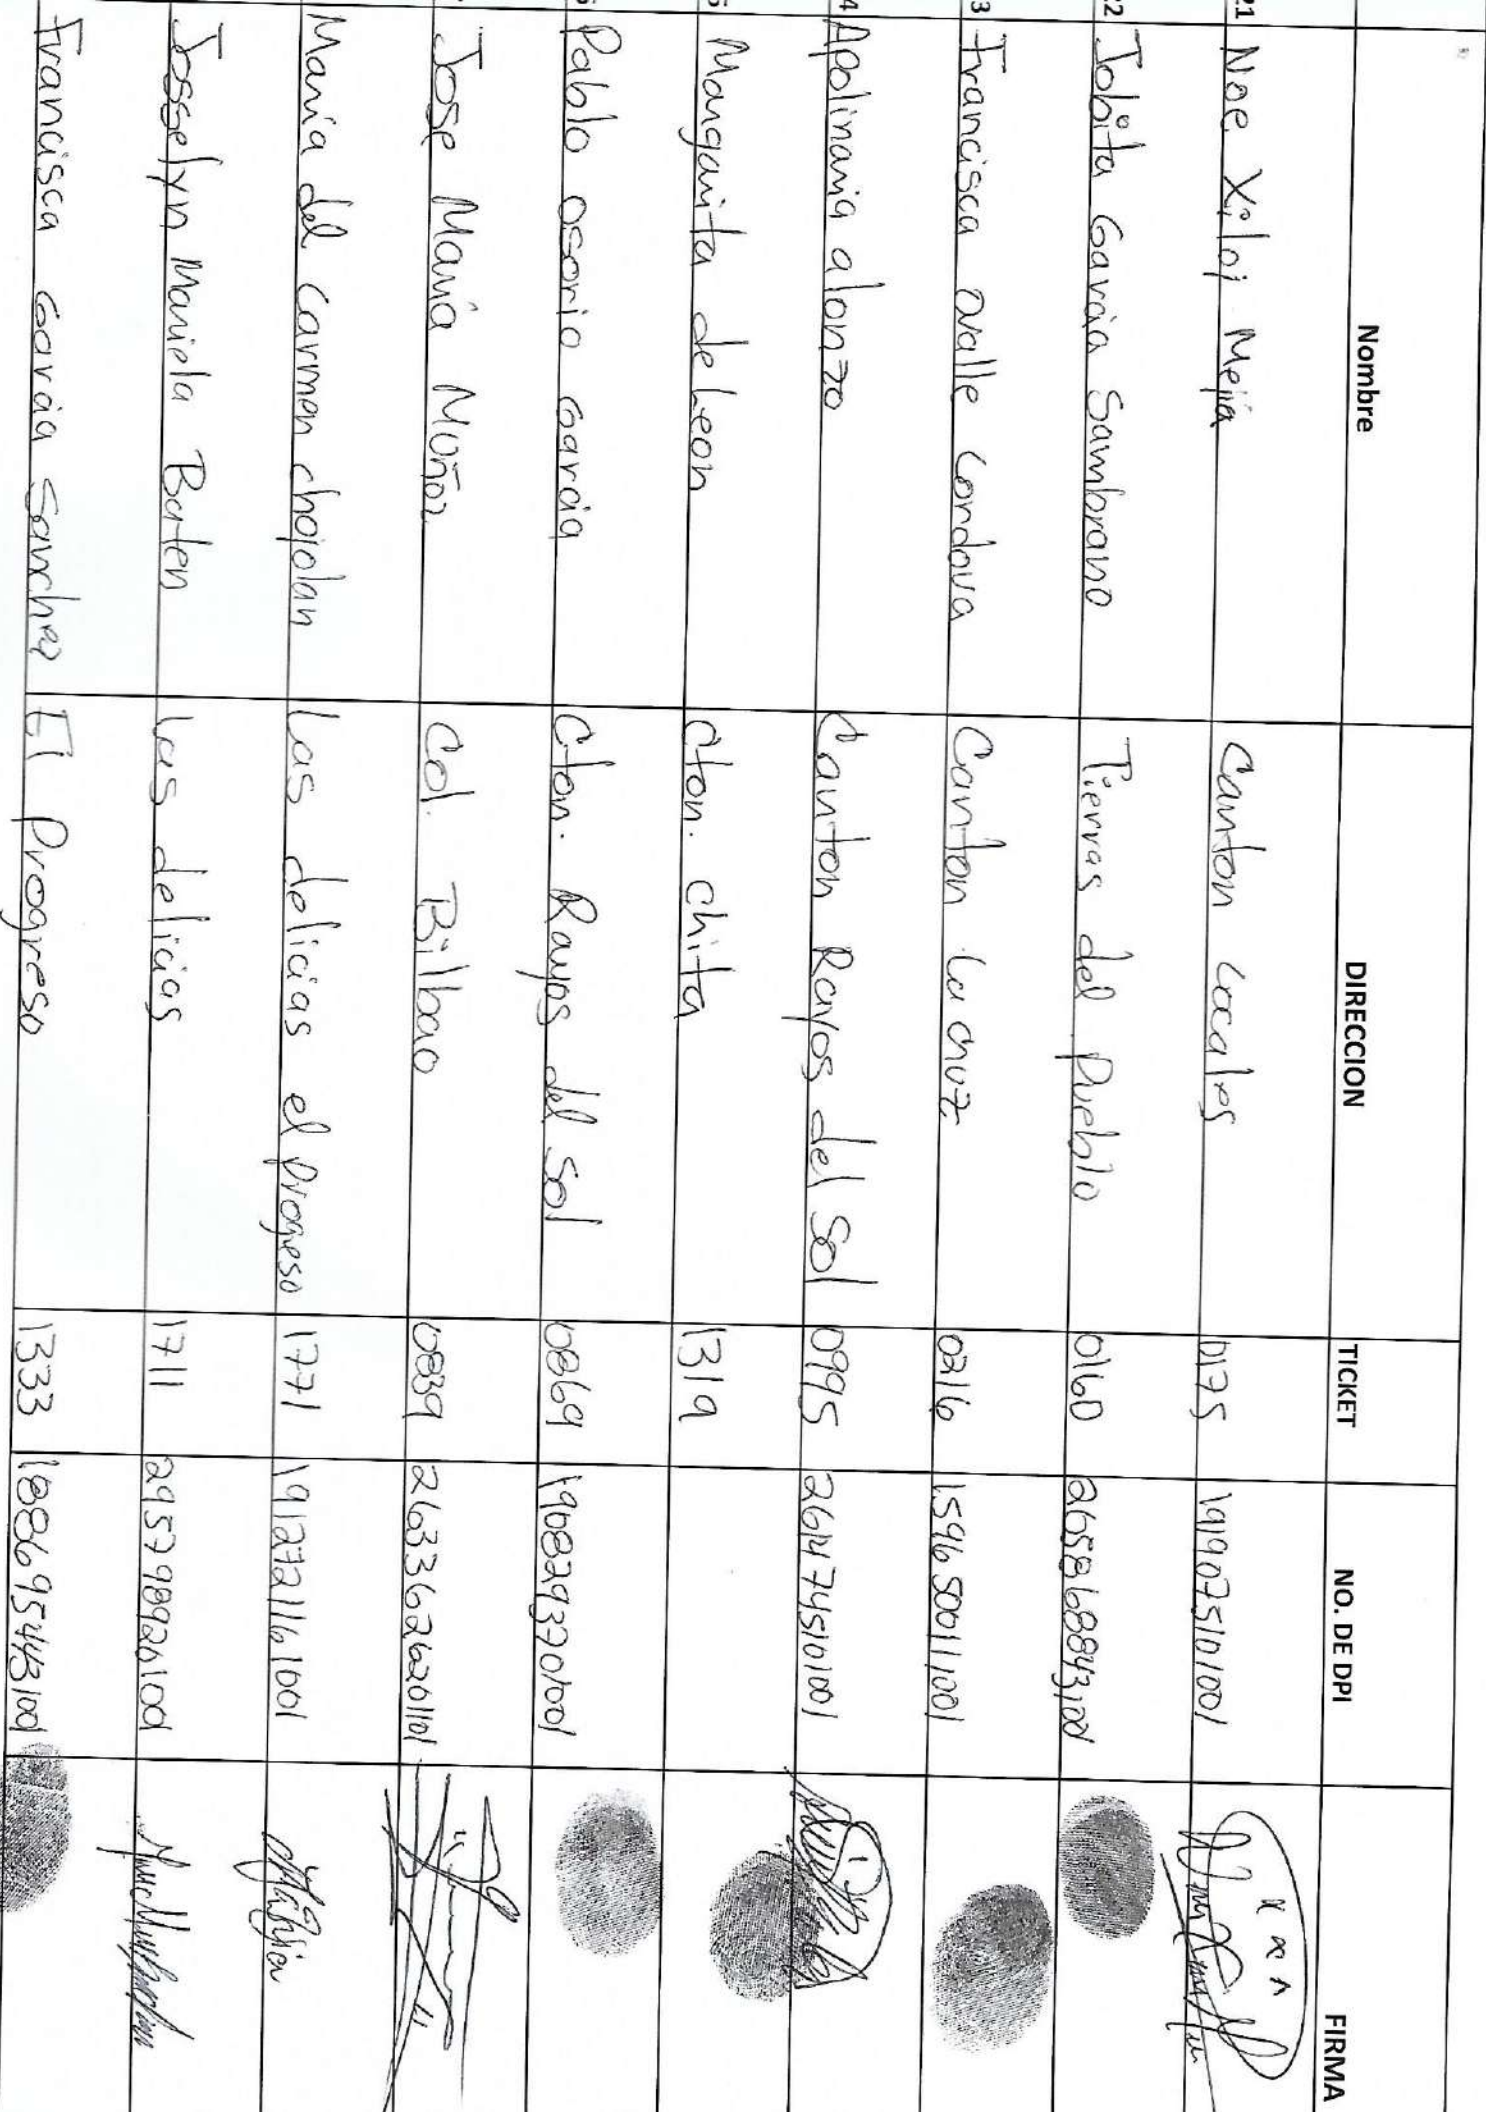 Nombre DIRECCION TICKET NO. DE DPI FIRMA
21 Noe Xiloj Mejía Canton Locales 0175 1919075101001
22 Jobita García Sambrano Tierras del Pueblo 0160 2658688431001
3 Francisca Ovalle Cordova Canton La Cruz 0216 1596500111001
4 Apolinaria alonzo Canton Rayos del Sol 0995 26141745101001
5 Margarita de Leon Cton. Chita 1319
6 Pablo Osorio García Cton. Rayos del Sol 0869 1968293701001
Jose María Muñoz Col. Bilbao 0839 2633626201101
María del Carmen chojolan Las delicias el Progreso 1771 1912721161001
Josselyn Mariela Barten Las delicias 1711 2957989201001
Francisca García Sanchez El Progreso 1333 1886954431001